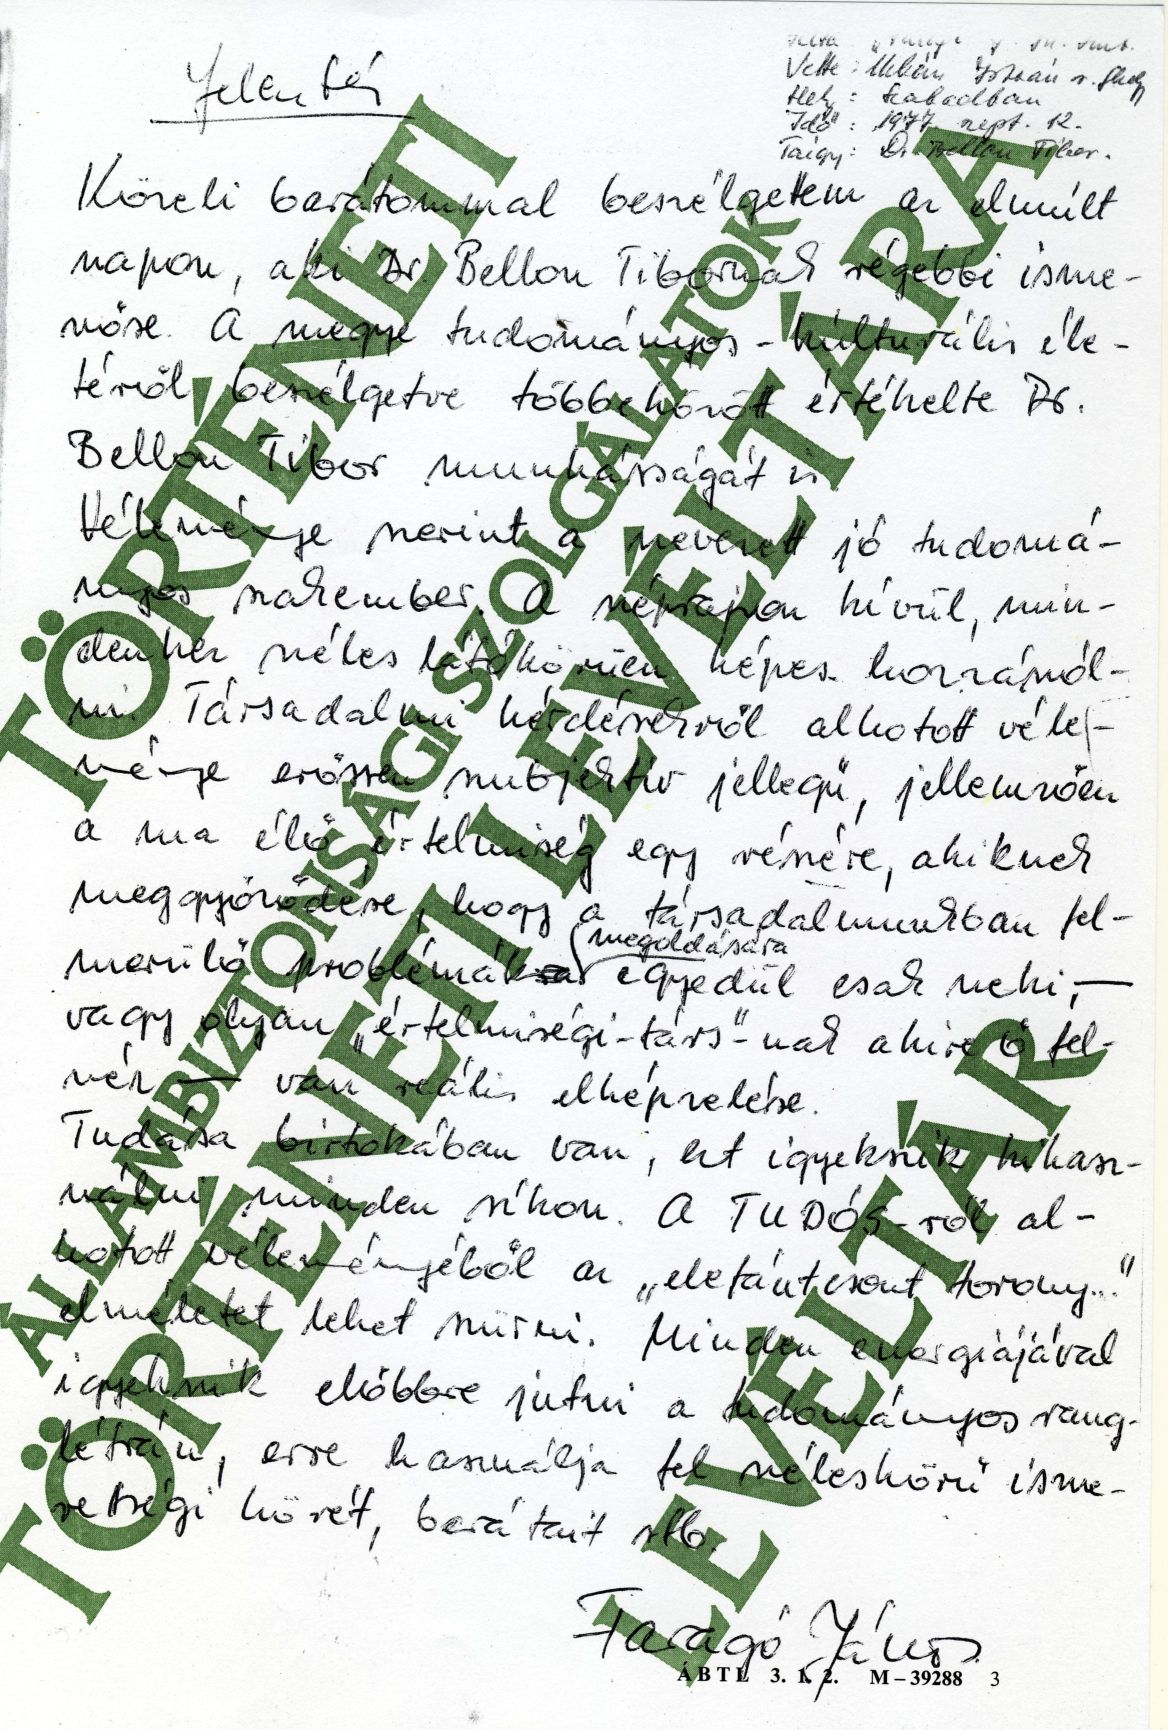 Jelentés
Vette: Urbán István r. fhdgy
Hely: Szabadban
Idő: 1977. szept. 12.
Tárgy: Dr. Bellon Tibor.
Közeli barátommal beszélgettem az elmúlt
napon, aki Dr. Bellon Tibornak régebbi isme-
rőse. A megye tudományos-kulturális éle-
téről beszélgetve többek között értékelte Dr.
Bellon Tibor munkásságát is.
Véleménye szerint a nevezett jó tudomá-
nyos szakember. A néprajzon kívül, min-
denhez széles látókörűen képes hozzászól-
ni. Társadalmi kérdésekről alkotott véle-
ménye erőssen szubjektív jellegű, jellemzően
a ma élő értelmiség egy részére, akiknek
meggyőződése, hogy a társadalmunkban fel-
megoldására
merülő problémák egyedül csak neki, —
vagy olyan „értelmiségi-társ"-nak akire ő fel-
néz — van reális elképzelése.
Tudása birtokában van, ezt igyekszik kihasz-
nálni minden síkon. A TUDÓS-ról al-
kotott véleményéből az „elefántcsont torony..."
elméletet lehet szűrni. Minden energiájával
igyekszik előbbre jutni a tudományos rang-
létrán, erre használja fel széleskörű isme-
retségi körét, barátait stb.
Faragó János
ÁBTL 3. 1. 2. M – 39288 3
ÁLLAMBIZTONSÁGI SZOLGÁLATOK
TÖRTÉNETI LEVÉLTÁRA
TÖRTÉNETI LEVÉLTÁR